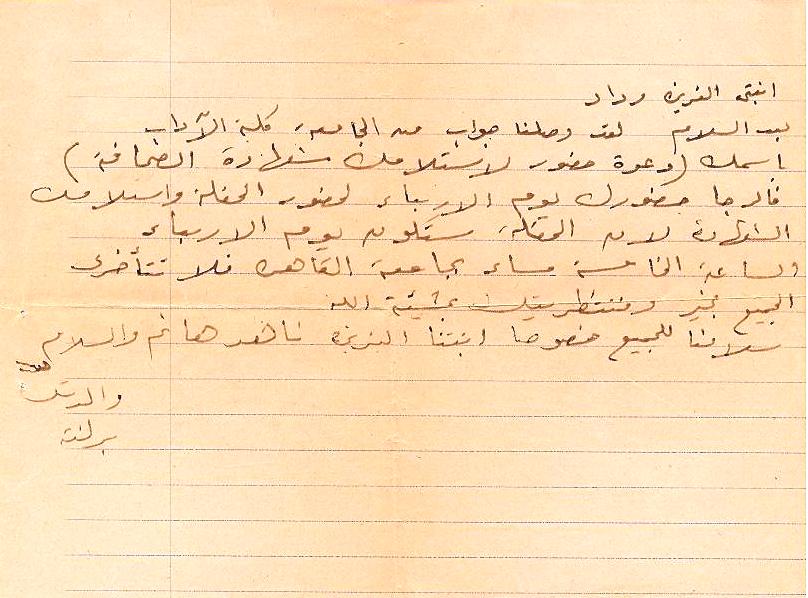 ابنتى العزيزه وداد
بعد السلام لقد وصلنا جواب من الجامعة كلية الآداب
باسمك (دعوة حضور لاستلامك شهادة الصحافة)
فالرجا حضورك يوم الاربعاء لحضور الحفلة واستلامك
الشهادة لان الحفلة ستكون يوم الاربعاء
الساعة الخامسة مساء بجامعة القاهره فلا تتأخرى
الجميع بخير ومنتظرينك بمشيئة الله
سلامنا للجميع خصوصا ابنتنا العزيزه ناهد هانم والسلام
والدتك